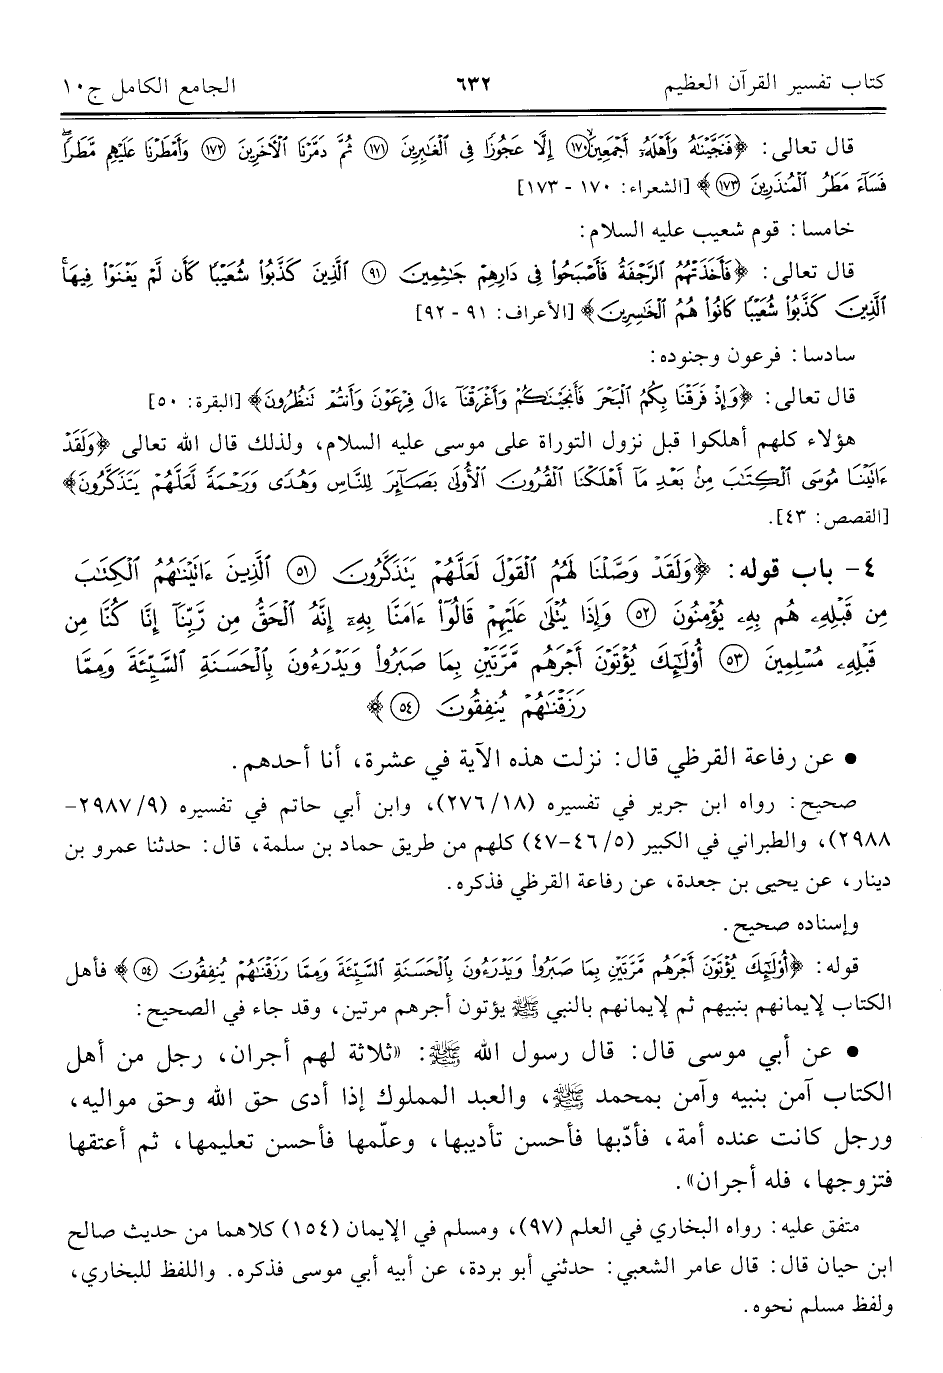 كتاب تفسير القرآن العظيم ٦٣٢ الجامع الكامل ج١٠
قال تعالى: ﴿فَنَجَّيْنَٰهُ وَأَهْلَهُۥٓ أَجْمَعِينَ ١٧٠ إِلَّا عَجُوزًا فِي ٱلْغَٰبِرِينَ ١٧١ ثُمَّ دَمَّرْنَا ٱلْأٓخَرِينَ ١٧٢ وَأَمْطَرْنَا عَلَيْهِم مَّطَرًاۖ
فَسَآءَ مَطَرُ ٱلْمُنذَرِينَ ١٧٣﴾ [الشعراء: ١٧٠ - ١٧٣]
خامسا: قوم شعيب عليه السلام:
قال تعالى: ﴿فَأَخَذَتْهُمُ ٱلرَّجْفَةُ فَأَصْبَحُوا۟ فِي دَارِهِمْ جَٰثِمِينَ ٩١ ٱلَّذِينَ كَذَّبُوا۟ شُعَيْبًا كَأَن لَّمْ يَغْنَوْا۟ فِيهَاۚ
ٱلَّذِينَ كَذَّبُوا۟ شُعَيْبًا كَانُوا۟ هُمُ ٱلْخَٰسِرِينَ﴾ [الأعراف: ٩١ - ٩٢]
سادسا: فرعون وجنوده:
قال تعالى: ﴿وَإِذْ فَرَقْنَا بِكُمُ ٱلْبَحْرَ فَأَنجَيْنَٰكُمْ وَأَغْرَقْنَآ ءَالَ فِرْعَوْنَ وَأَنتُمْ تَنظُرُونَ﴾ [البقرة: ٥٠]
هؤلاء كلهم أهلكوا قبل نزول التوراة على موسى عليه السلام، ولذلك قال الله تعالى ﴿وَلَقَدْ
ءَاتَيْنَا مُوسَى ٱلْكِتَٰبَ مِنۢ بَعْدِ مَآ أَهْلَكْنَا ٱلْقُرُونَ ٱلْأُولَىٰ بَصَآئِرَ لِلنَّاسِ وَهُدًى وَرَحْمَةً لَّعَلَّهُمْ يَتَذَكَّرُونَ﴾
[القصص: ٤٣].
٤- باب قوله: ﴿وَلَقَدْ وَصَّلْنَا لَهُمُ ٱلْقَوْلَ لَعَلَّهُمْ يَتَذَكَّرُونَ ٥١ ٱلَّذِينَ ءَاتَيْنَٰهُمُ ٱلْكِتَٰبَ
مِن قَبْلِهِۦ هُم بِهِۦ يُؤْمِنُونَ ٥٢ وَإِذَا يُتْلَىٰ عَلَيْهِمْ قَالُوٓا۟ ءَامَنَّا بِهِۦٓ إِنَّهُ ٱلْحَقُّ مِن رَّبِّنَآ إِنَّا كُنَّا مِن
قَبْلِهِۦ مُسْلِمِينَ ٥٣ أُو۟لَٰٓئِكَ يُؤْتَوْنَ أَجْرَهُم مَّرَّتَيْنِ بِمَا صَبَرُوا۟ وَيَدْرَءُونَ بِٱلْحَسَنَةِ ٱلسَّيِّئَةَ وَمِمَّا
رَزَقْنَٰهُمْ يُنفِقُونَ ٥٤﴾
• عن رفاعة القرظي قال: نزلت هذه الآية في عشرة، أنا أحدهم.
صحيح: رواه ابن جرير في تفسيره (١٨/ ٢٧٦)، وابن أبي حاتم في تفسيره (٩/ ٢٩٨٧-
٢٩٨٨)، والطبراني في الكبير (٥/ ٤٦-٤٧) كلهم من طريق حماد بن سلمة، قال: حدثنا عمرو بن
دينار، عن يحيى بن جعدة، عن رفاعة القرظي فذكره.
وإسناده صحيح.
قوله: ﴿أُو۟لَٰٓئِكَ يُؤْتَوْنَ أَجْرَهُم مَّرَّتَيْنِ بِمَا صَبَرُوا۟ وَيَدْرَءُونَ بِٱلْحَسَنَةِ ٱلسَّيِّئَةَ وَمِمَّا رَزَقْنَٰهُمْ يُنفِقُونَ ٥٤﴾ فأهل
الكتاب لإيمانهم بنبيهم ثم لإيمانهم بالنبي ﷺ يؤتون أجرهم مرتين، وقد جاء في الصحيح:
• عن أبي موسى قال: قال رسول الله ﷺ: «ثلاثة لهم أجران، رجل من أهل
الكتاب آمن بنبيه وآمن بمحمد ﷺ، والعبد المملوك إذا أدى حق الله وحق مواليه،
ورجل كانت عنده أمة، فأدّبها فأحسن تأديبها، وعلّمها فأحسن تعليمها، ثم أعتقها
فتزوجها، فله أجران».
متفق عليه: رواه البخاري في العلم (٩٧)، ومسلم في الإيمان (١٥٤) كلاهما من حديث صالح
ابن حيان قال: قال عامر الشعبي: حدثني أبو بردة، عن أبيه أبي موسى فذكره. واللفظ للبخاري،
ولفظ مسلم نحوه.